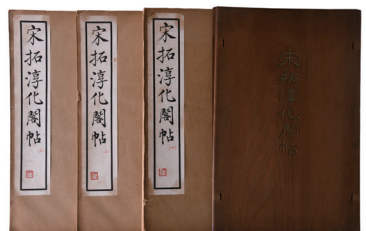 宋拓淳化閣帖
宋拓淳化閣帖
宋拓淳化閣帖
宋拓淳化閣帖